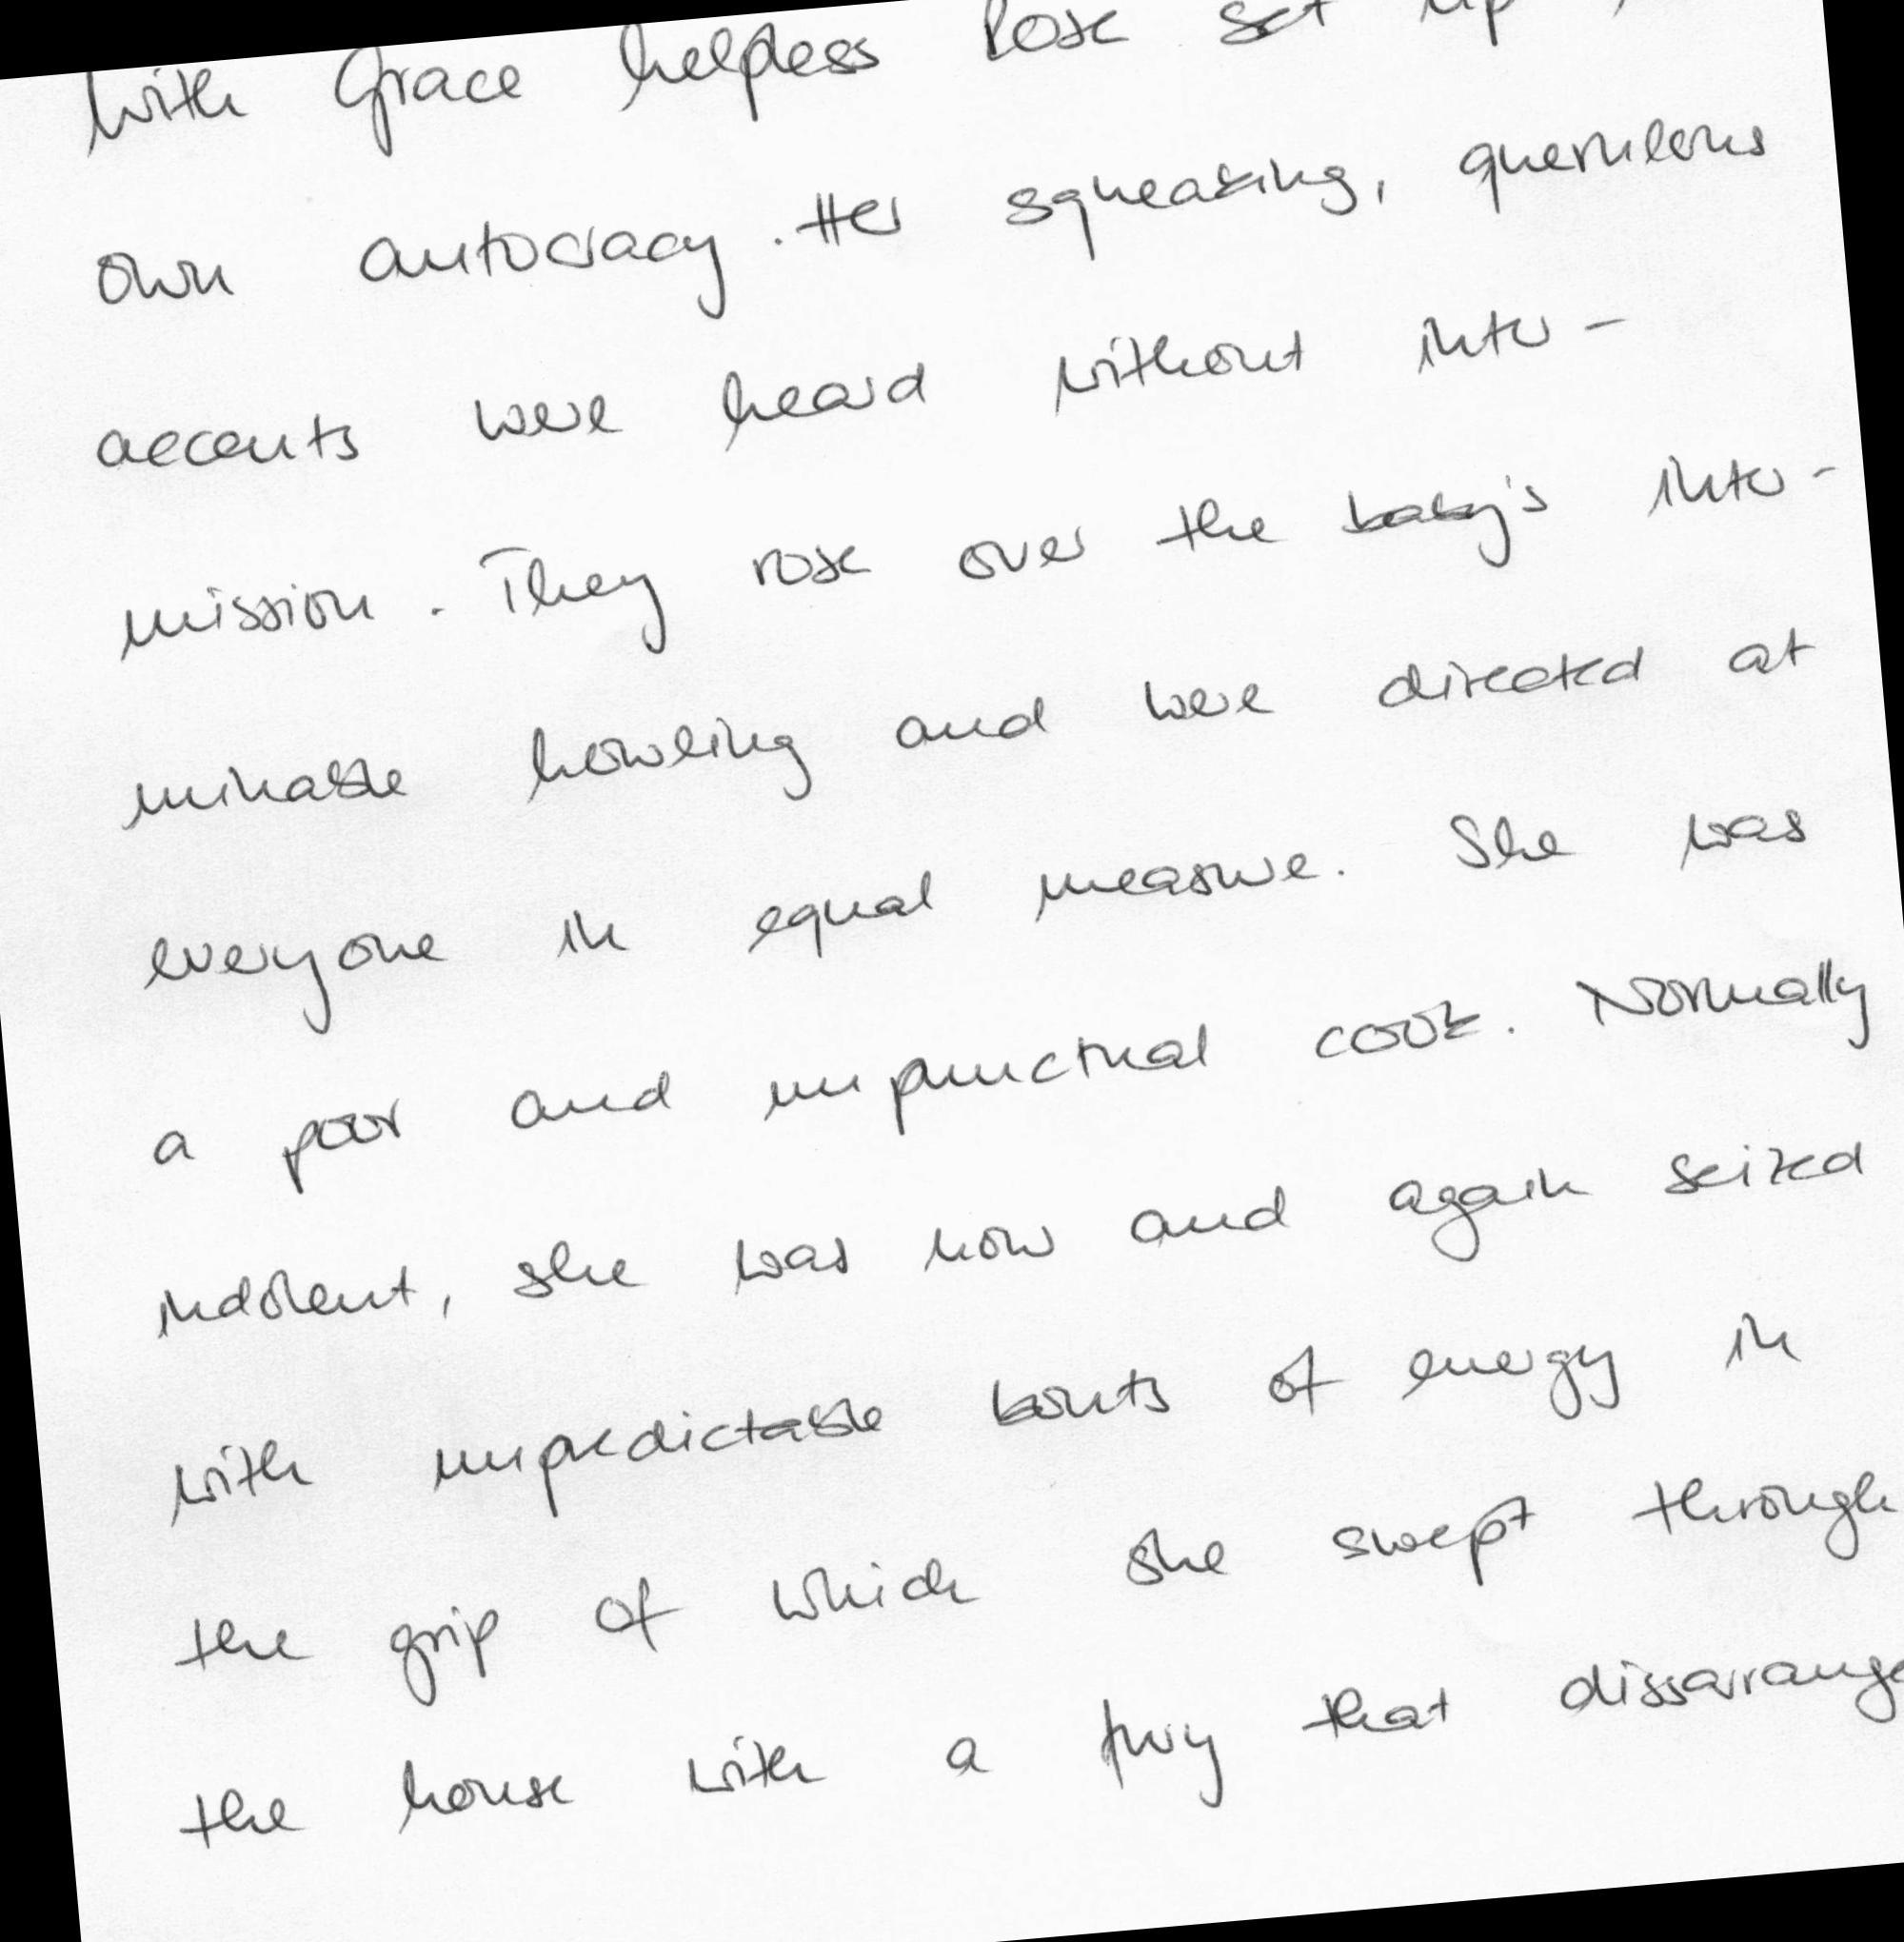 With Grace helpless Rose set up
own autocracy. Her squeaking, querulous
accents were heard without inter-
mission. They rose over the baby's inter-
minable howling and were directed at
everyone in equal measure. She was
a poor and unpunctual cook. Normally
indolent, she was now and again seized
with unpredictable bouts of energy in
the grip of which she swept through
the house with a fury that dissarrange